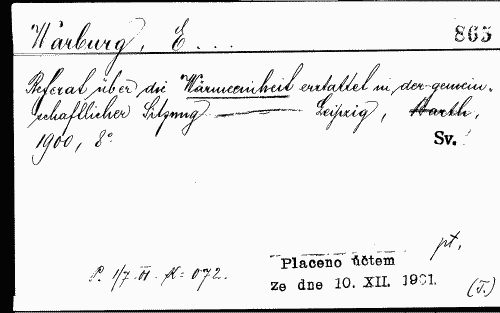 Warburg, E....
865
Referat über die Wärmeeinheit erstattet in der gemein-
schaftlicher Sitzung — Leipzig, Barth,
1900, 8°
Sv.
pt.
Placeno účtem
P. 1/7. VI. K: 072.
ze dne 10. XII. 1901.
(T.)